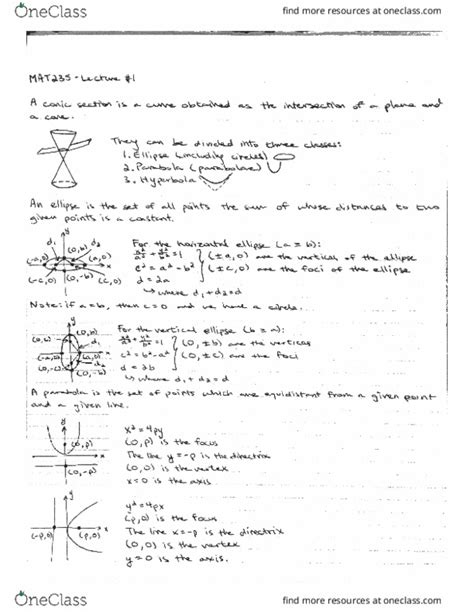 OneClass
find more resources at oneclass.com
MAT235 - Lecture #1
A conic section is a curve obtained as the intersection of a plane and
a cone.
They can be divided into three classes:
1. Ellipse (including circles)
2. Parabola (parabolae)
3. Hyperbola
An ellipse is the set of all points the sum of whose distances to two
given points is a constant.
d₁ y d₂
(0,b)
(-a,0) (a,0)
x
(-c,0) (0,-b) (c,0)
For the horizontal ellipse (a ≥ b):
x²/a² + y²/b² = 1 (±a,0) are the vertices of the ellipse
c² = a² - b² (±c,0) are the foci of the ellipse
d = 2a
↳ where d₁+d₂=d
Note: if a=b, then c=0 and we have a circle.
y
(0,b)
(0,c)
d₁
(-a,0) (a,0) x
(0,-c) d₂
(0,-b)
For the vertical ellipse (b ≥ a):
x²/a² + y²/b² = 1 (0,±b) are the vertices
c² = b² - a² (0,±c) are the foci
d = 2b
↳ where d₁+d₂=d
A parabola is the set of points which are equidistant from a given point
and a given line.
y
(0,p)
x
(0,-p)
x² = 4py
(0,p) is the focus
The line y=-p is the directrix
(0,0) is the vertex
x=0 is the axis
y
x
(-p,0) (p,0)
y² = 4px
(p,0) is the focus
The line x=-p is the directrix
(0,0) is the vertex
y=0 is the axis.
OneClass
find more resources at oneclass.com